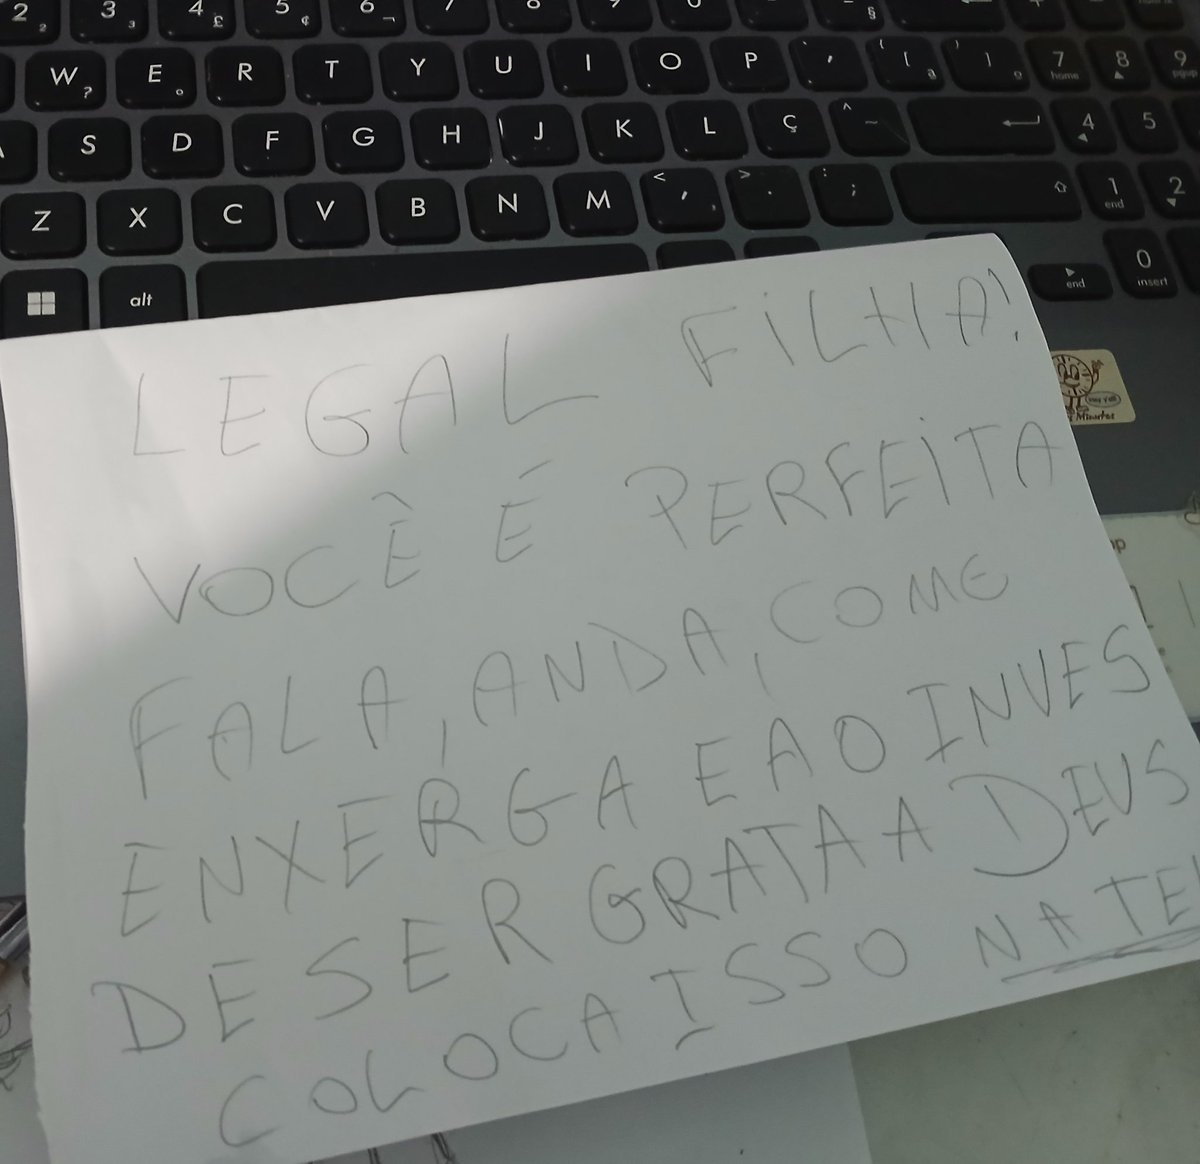 2 3 4 5 6 7 8 9 0
2 3 £ ¢ ¬ §
W ? E ° R T Y U I O P ` ´ { [ ª } ] º 7 home 8 9 pgup
S D F G H J K L Ç ^ ~ 4 5
Z X C V B N M < , > . : ; 1 end 2
alt end 0 insert
LEGAL FILHA!
VOCÊ É PERFEITA
FALA, ANDA, COME
ENXERGA E AO INVES
DE SER GRATA A DEUS
COLOCA ISSO NA TE
Minutes